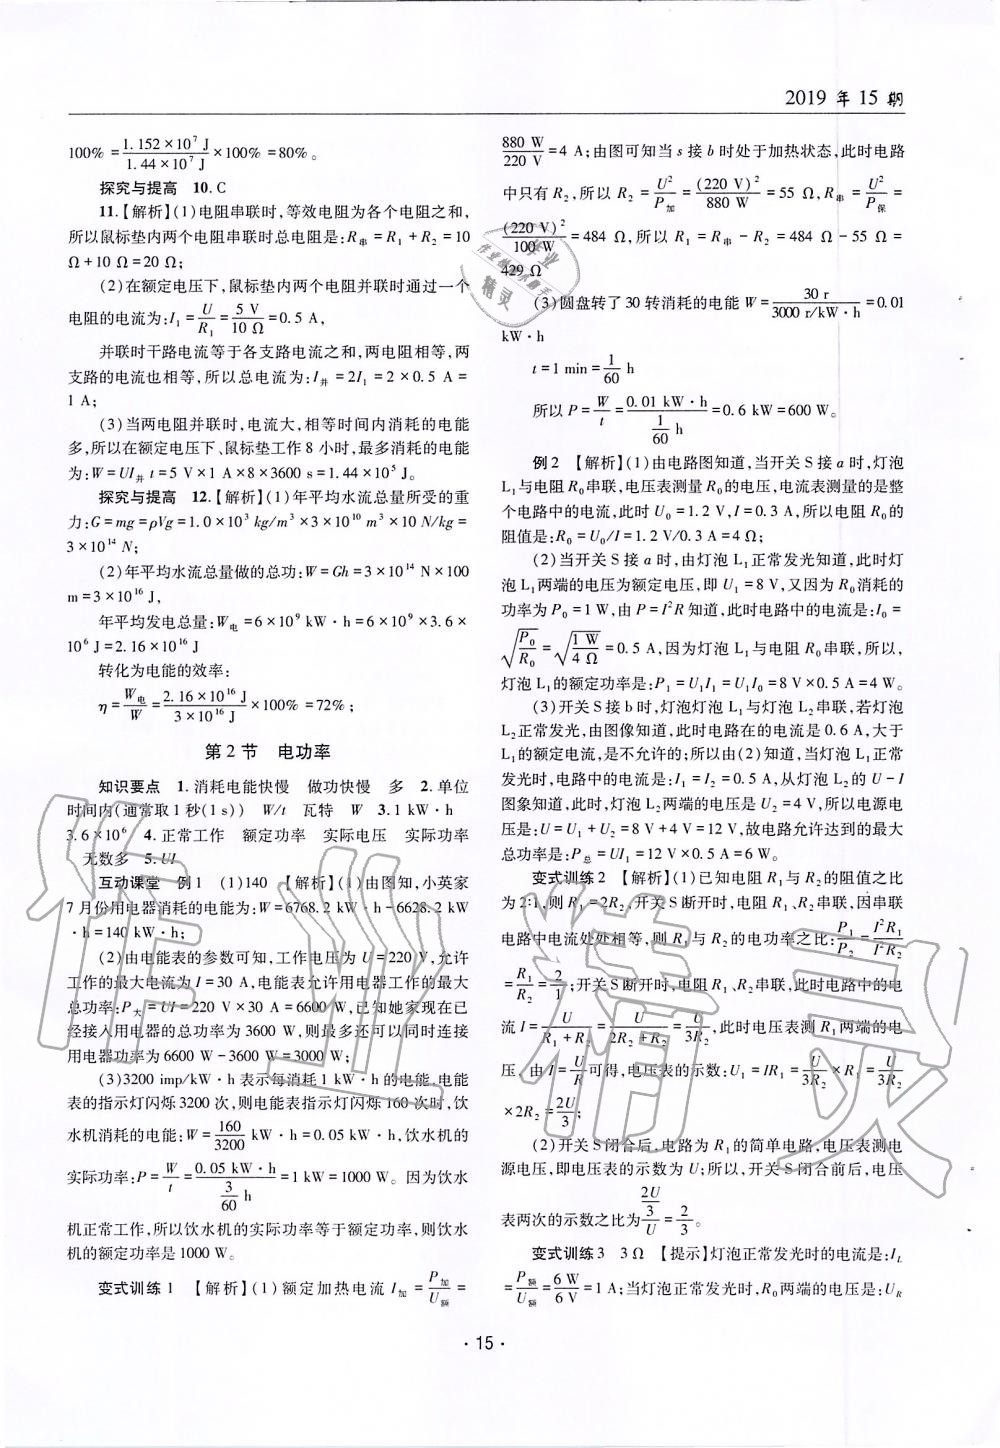 2019 年 15 期
100% = 1.152×10⁷ J / 1.44×10⁷ J ×100% = 80%。
探究与提高 10. C
11.【解析】(1)电阻串联时,等效电阻为各个电阻之和,
所以鼠标垫内两个电阻串联时总电阻是:R串 = R₁ + R₂ = 10
Ω + 10 Ω = 20 Ω;
(2)在额定电压下,鼠标垫内两个电阻并联时通过一个
电阻的电流为:I₁ = U/R₁ = 5 V/10 Ω = 0.5 A,
并联时干路电流等于各支路电流之和,两电阻相等,两
支路的电流也相等,所以总电流为:I并 = 2I₁ = 2 × 0.5 A =
1 A;
(3)当两电阻并联时,电流大,相等时间内消耗的电能
多,所以在额定电压下、鼠标垫工作 8 小时,最多消耗的电能
为:W = UI并 t = 5 V × 1 A × 8 × 3600 s = 1.44×10⁵ J。
探究与提高 12.【解析】(1)年平均水流总量所受的重
力:G = mg = ρVg = 1.0 × 10³ kg/m³ × 3 × 10¹⁰ m³ × 10 N/kg =
3×10¹⁴ N;
(2)年平均水流总量做的总功:W = Gh = 3×10¹⁴ N×100
m = 3×10¹⁶ J,
年平均发电总量:W电 = 6×10⁹ kW·h = 6×10⁹ ×3.6×
10⁶ J = 2.16×10¹⁶ J
转化为电能的效率:
η = W电/W = 2.16×10¹⁶ J / 3×10¹⁶ J ×100% = 72%;
第 2 节 电功率
知识要点 1. 消耗电能快慢 做功快慢 多 2. 单位
时间内(通常取 1 秒(1 s)) W/t 瓦特 W 3. 1 kW·h
3.6×10⁶ 4. 正常工作 额定功率 实际电压 实际功率
无数多 5. UI
互动课堂 例 1 (1)140 【解析】(1)由图知,小英家
7 月份用电器消耗的电能为:W = 6768.2 kW·h - 6628.2 kW
·h = 140 kW·h;
(2)由电能表的参数可知,工作电压为 U = 220 V,允许
工作的最大电流为 I = 30 A,电能表允许用电器工作的最大
总功率:P大 = UI = 220 V × 30 A = 6600 W,已知她家现在已
经接入用电器的总功率为 3600 W,则最多还可以同时连接
用电器功率为 6600 W - 3600 W = 3000 W;
(3)3200 imp/kW·h 表示每消耗 1 kW·h 的电能,电能
表的指示灯闪烁 3200 次,则电能表指示灯闪烁 160 次时,饮
水机消耗的电能:W = 160/3200 kW·h = 0.05 kW·h,饮水机的
实际功率:P = W/t = 0.05 kW·h / (3/60 h) = 1000 W。因为饮水
机正常工作,所以饮水机的实际功率等于额定功率,则饮水
机的额定功率是 1000 W。
变式训练 1 【解析】(1)额定加热电流 I加 = P加/U额 =
880 W/220 V = 4 A;由图可知当 s 接 b 时处于加热状态,此时电路
中只有 R₂,所以 R₂ = U²/P加 = (220 V)²/880 W = 55 Ω,R串 = U²/P保 =
(220 V)²/100 W = 484 Ω,所以 R₁ = R串 - R₂ = 484 Ω - 55 Ω =
429 Ω
(3)圆盘转了 30 转消耗的电能 W = 30 r / 3000 r/kW·h = 0.01
kW·h
t = 1 min = 1/60 h
所以 P = W/t = 0.01 kW·h / (1/60 h) = 0.6 kW = 600 W。
例 2 【解析】(1)由电路图知道,当开关 S 接 a 时,灯泡
L₁ 与电阻 R₀ 串联,电压表测量 R₀ 的电压,电流表测量的是整
个电路中的电流,此时 U₀ = 1.2 V,I = 0.3 A,所以电阻 R₀ 的
阻值是:R₀ = U₀/I = 1.2 V/0.3 A = 4 Ω;
(2)当开关 S 接 a 时,由灯泡 L₁ 正常发光知道,此时灯
泡 L₁ 两端的电压为额定电压,即 U₁ = 8 V,又因为 R₀ 消耗的
功率为 P₀ = 1 W,由 P = I²R 知道,此时电路中的电流是:I₀ =
√(P₀/R₀) = √(1 W/4 Ω) = 0.5 A,因为灯泡 L₁ 与电阻 R₀ 串联,所以,
灯泡 L₁ 的额定功率是:P₁ = U₁I₁ = U₁I₀ = 8 V×0.5 A = 4 W。
(3)开关 S 接 b 时,灯泡灯泡 L₁ 与灯泡 L₂ 串联,若灯泡
L₂ 正常发光,由图像知道,此时电路在的电流是 0.6 A,大于
L₁ 的额定电流,是不允许的;所以由(2)知道,当灯泡 L₁ 正常
发光时,电路中的电流是:I₁ = I₂ = 0.5 A,从灯泡 L₂ 的 U - I
图象知道,此时,灯泡 L₂ 两端的电压是 U₂ = 4 V,所以电源电
压是:U = U₁ + U₂ = 8 V + 4 V = 12 V,故电路允许达到的最大
总功率是:P总 = UI₁ = 12 V×0.5 A = 6 W。
变式训练 2 【解析】(1)已知电阻 R₁ 与 R₂ 的阻值之比
为 2:1,则 R₁ = 2R₂,开关 S 断开时,电阻 R₁、R₂ 串联,因串联
电路中电流处处相等,则 R₁ 与 R₂ 的电功率之比:P₁/P₂ = I²R₁/I²R₂
= R₁/R₂ = 2/1;开关 S 断开时,电阻 R₁、R₂ 串联,此时电路中的电
流 I = U/(R₁+R₂) = U/(2R₂+R₂) = U/3R₂,此时电压表测 R₁ 两端的电
压,由 I = U/R 可得,电压表的示数:U₁ = IR₁ = U/3R₂ × R₁ = U/3R₂
× 2R₂ = 2U/3;
(2)开关 S 闭合后,电路为 R₁ 的简单电路,电压表测电
源电压,即电压表的示数为 U;所以,开关 S 闭合前后,电压
表两次的示数之比为 (2U/3)/U = 2/3。
变式训练 3 3 Ω 【提示】灯泡正常发光时的电流是:I_L
= P额/U额 = 6 W/6 V = 1 A;当灯泡正常发光时,R₀ 两端的电压是:U_R
· 15 ·
作业精灵